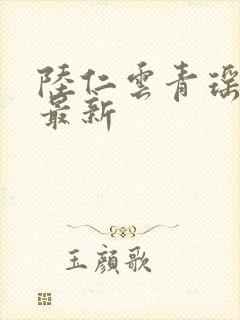 陸仁雲青瑶
最新
玉顏歌